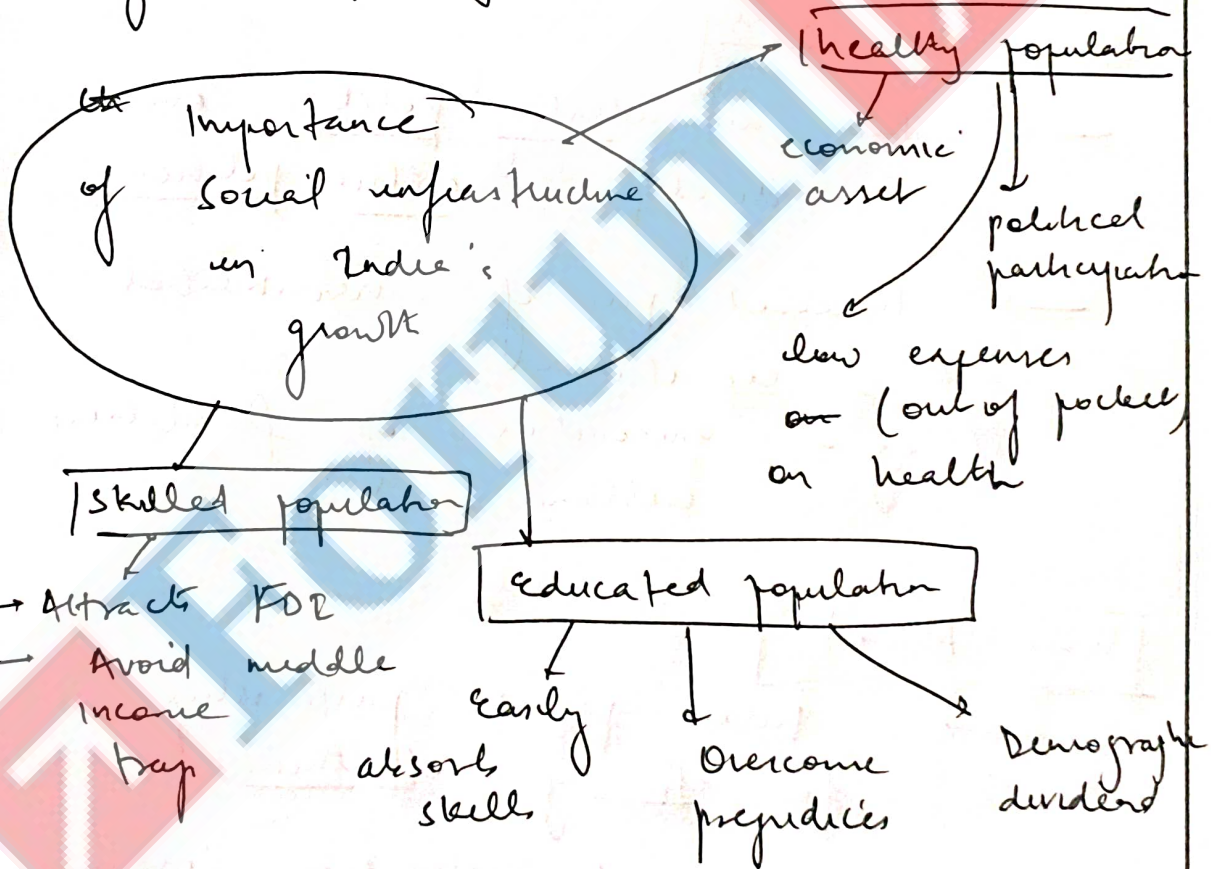 Importance
of Social infrastructure
in India's
growth
healthy population
economic
asset
political
participation
low expenses
(out of pocket)
on health
Skilled population
→ Attracts FDI
→ Avoid middle
income
trap
Educated population
Easily
absorbs
skills
Overcome
prejudices
Demographic
dividend
Forum